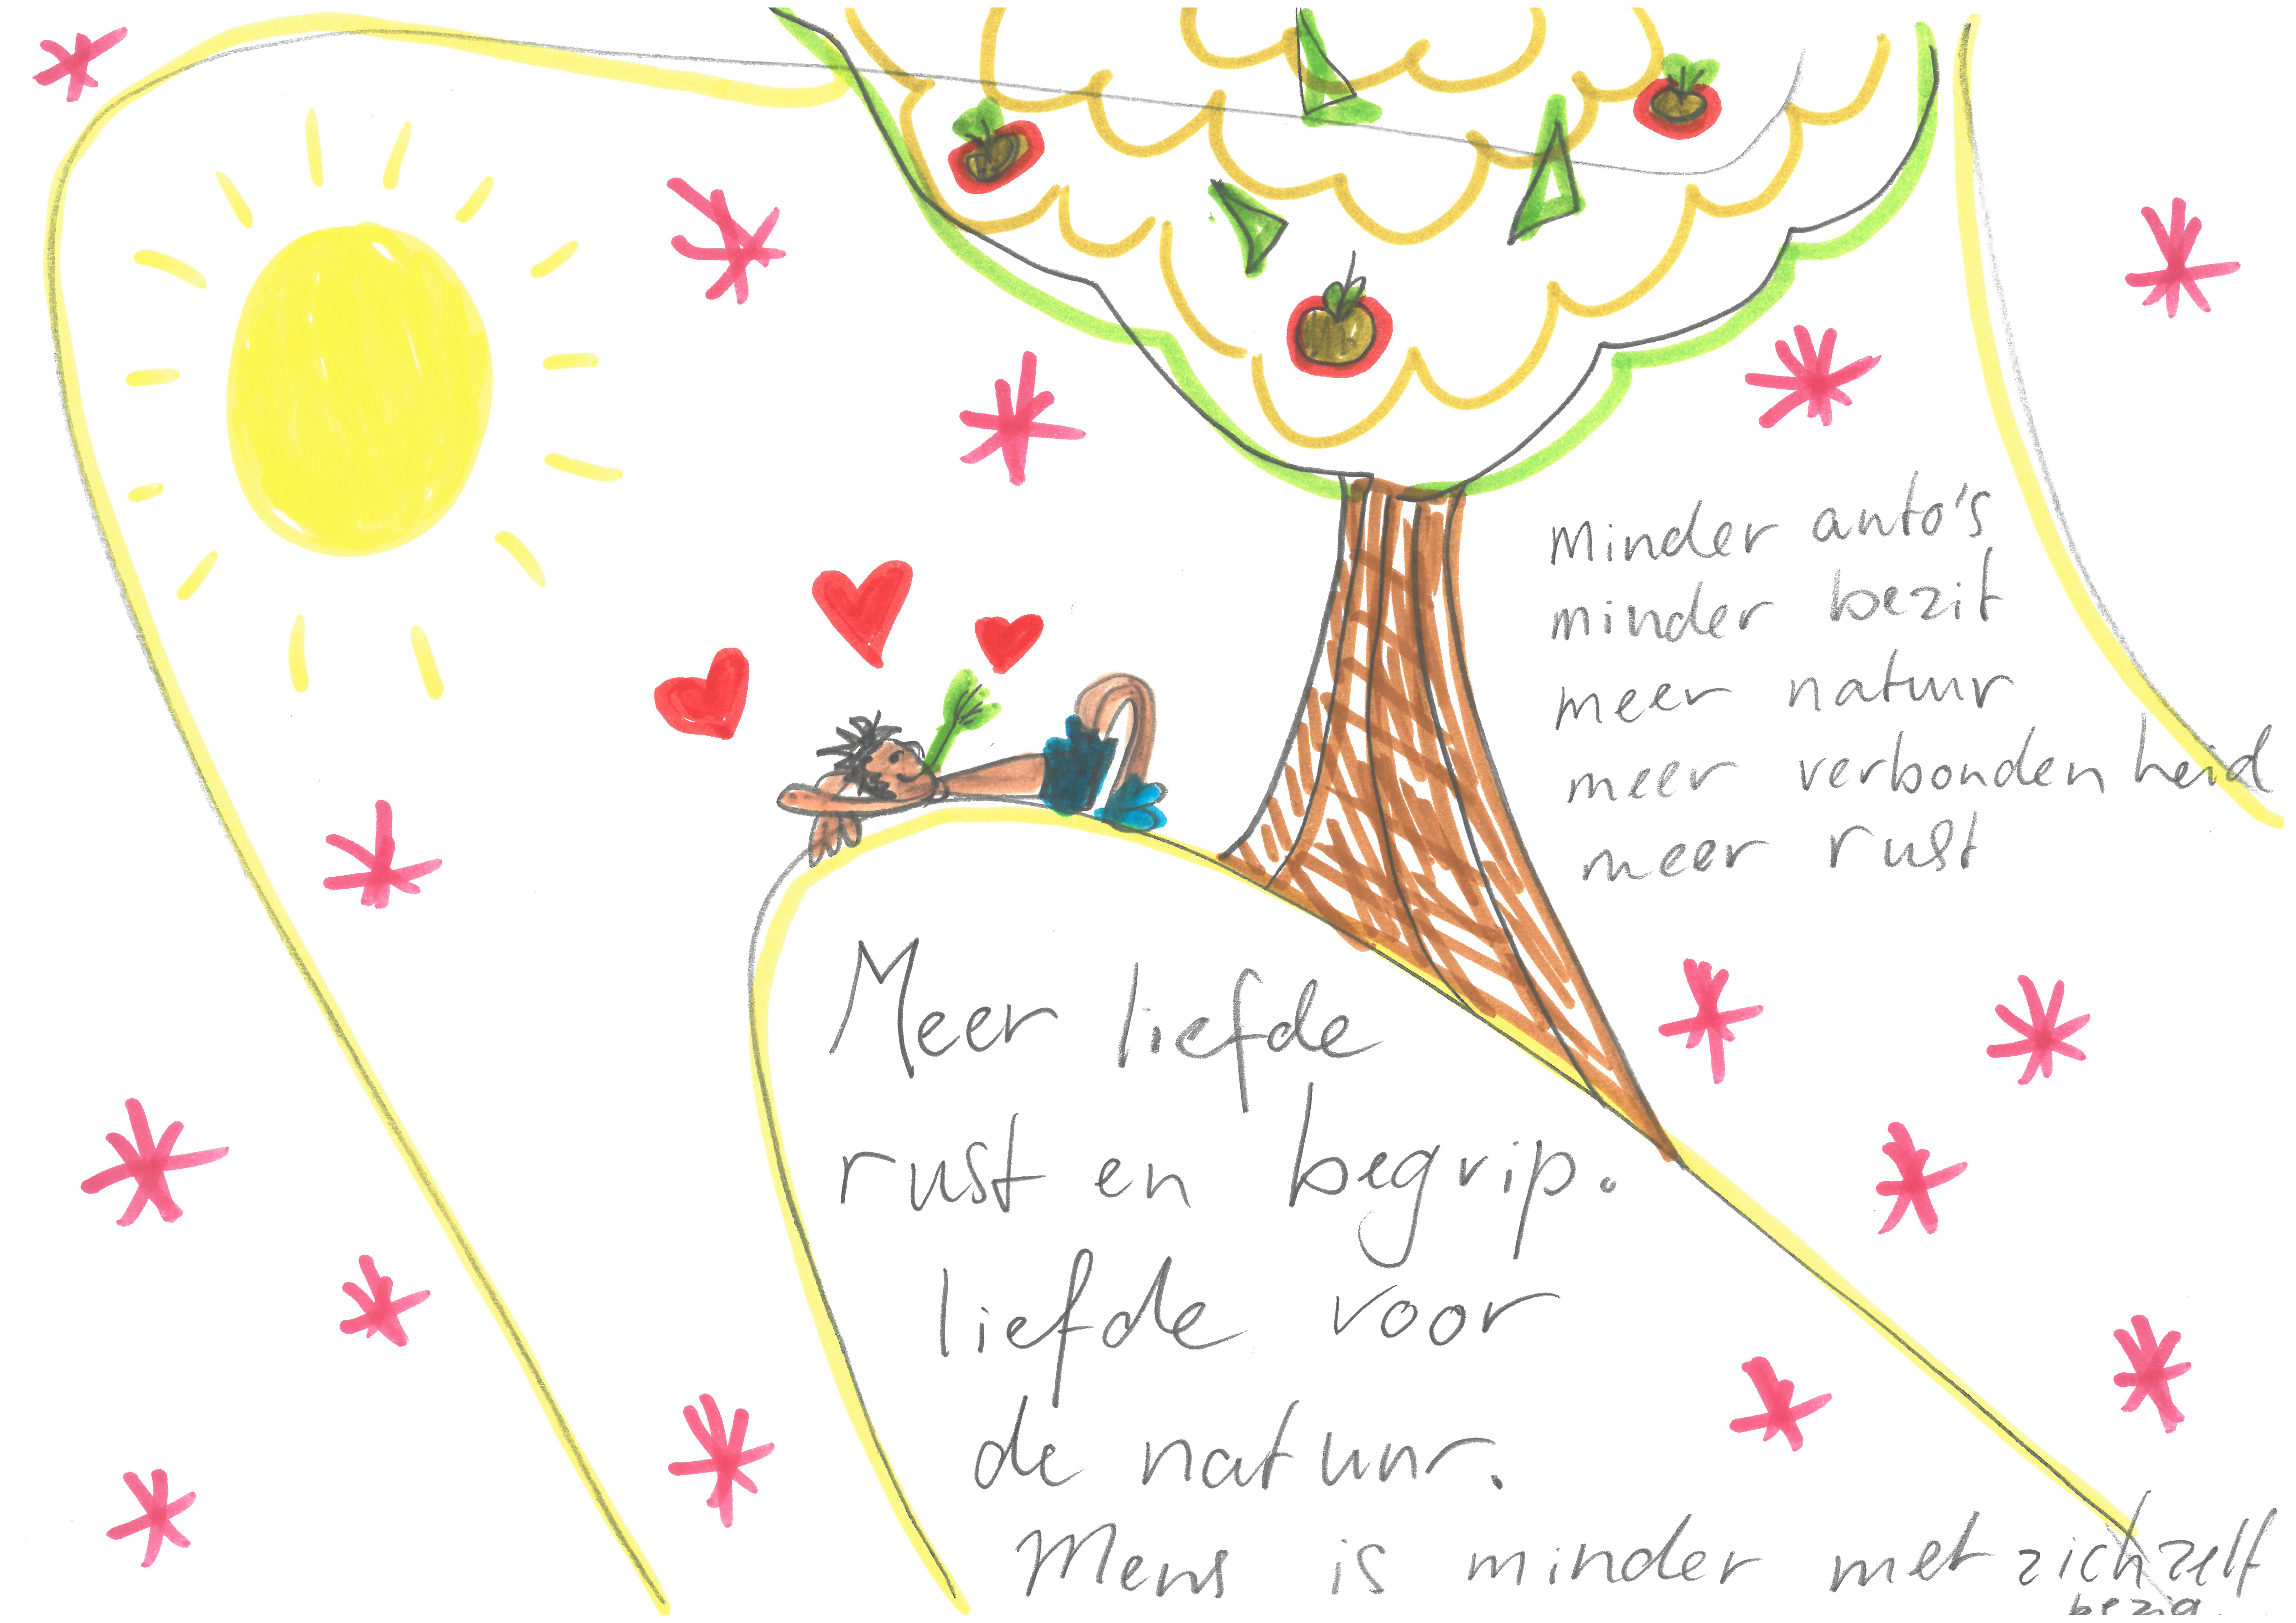 Minder auto's
minder bezit
meer natuur
meer verbondenheid
meer rust
Meer liefde
rust en begrip.
liefde voor
de natuur.
Mens is minder met zichzelf
bezig.